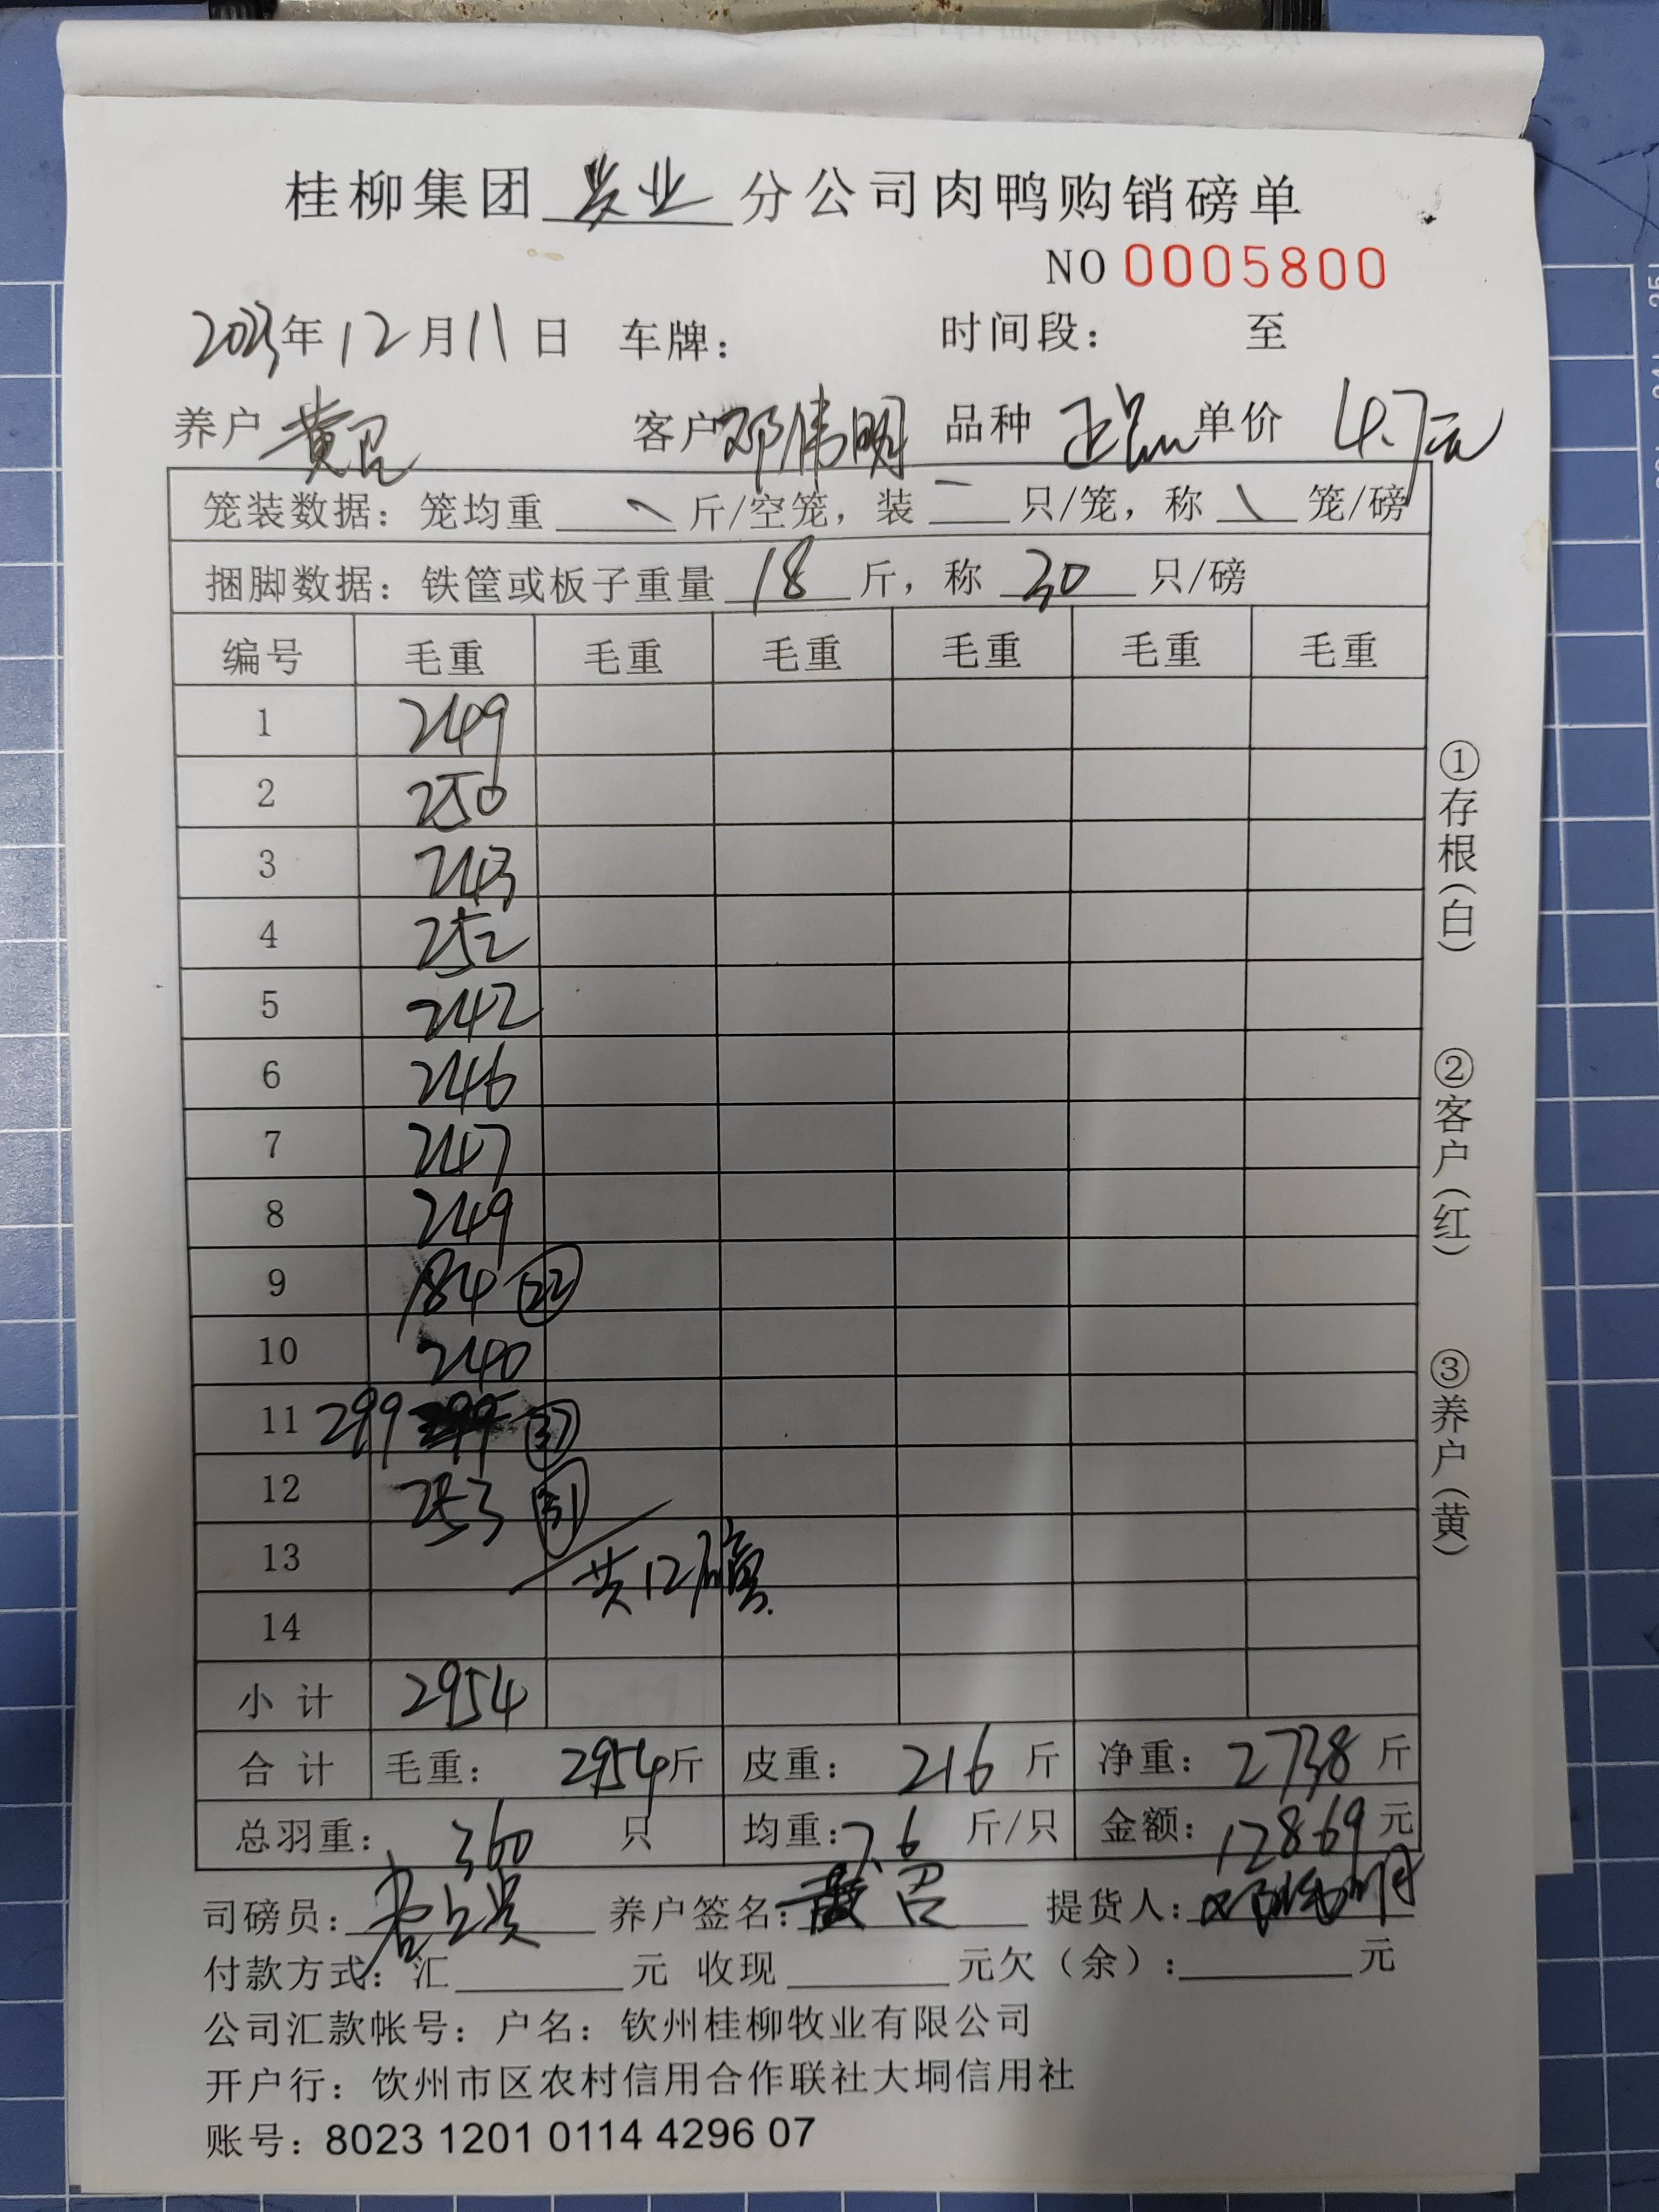 桂柳集团 业 分公司肉鸭购销磅单
NO 0005800
2023年12月11日 车牌： 时间段： 至
养户 黄召 客户 邓伟明 品种 正品 单价 4.7元
笼装数据：笼均重 \ 斤/空笼，装 一 只/笼，称 \ 笼/磅
捆脚数据：铁筐或板子重量 18 斤，称 30 只/磅
编号 毛重 毛重 毛重 毛重 毛重 毛重
1 249
2 250
3 243
4 252
5 242
6 246
7 247
8 249
9 184 22
10 240
11 299 37
12 253 31
13 共12磅
14
小计 2954
合计 毛重： 2954斤 皮重： 216 斤 净重： 2738 斤
总羽重： 360 只 均重：7.6 斤/只 金额： 12869 元
司磅员： 养户签名：黄召 提货人：邓伟明
付款方式：汇 元 收现 元欠（余）： 元
公司汇款帐号：户名：钦州桂柳牧业有限公司
开户行：钦州市区农村信用合作联社大垌信用社
账号：8023 1201 0114 4296 07
①存根（白）
②客户（红）
③养户（黄）